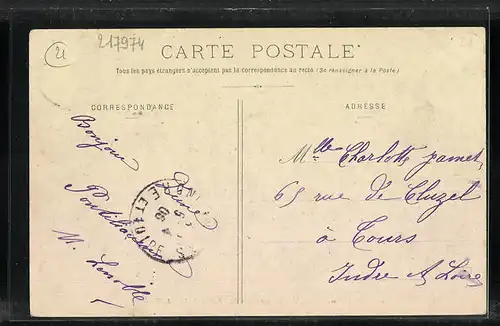 21
217974
CARTE POSTALE
Tous les pays étrangers n'acceptent pas la correspondance au recto (Se renseigner à la Poste)
CORRESPONDANCE
ADRESSE
Bonjour
M. 
Mlle Charlotte
65 rue de Cluzel
à Tours
Indre & Loire
ET LOIRE